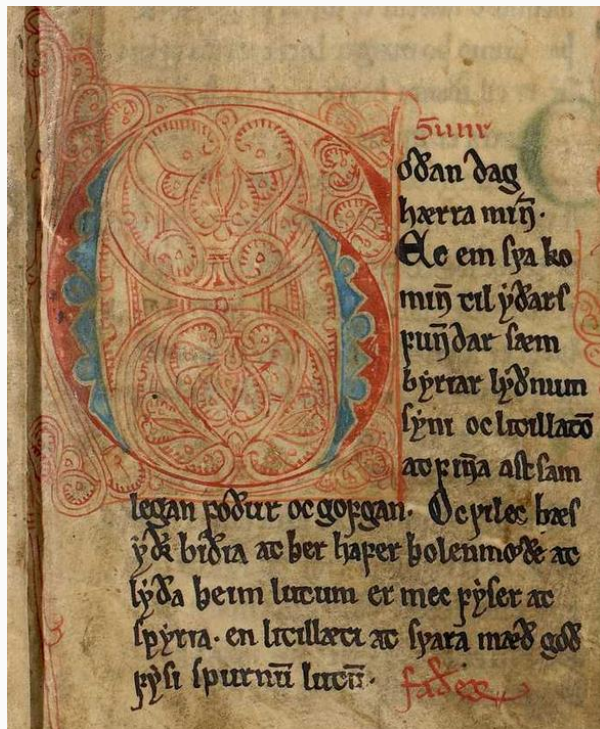 Sunr
Goðan dag
hærra miñ.
Ec em sva ko
miñ til yðars
fuñdar sæm
byriar lyðnum
syni oc litillatō
at fiña astsam
legan foður oc gofgan. Oc vil ec þæs
yðr biðia at þer hafer þolenmoðe at
lyða þeim lutum er mec fyser at
spyria. en litillæti at svara mæð goð
fysi spurnū lutū.
faðer